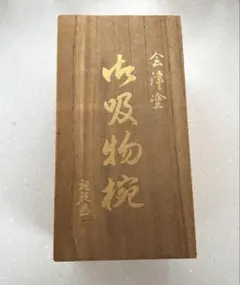 会津塗
御吸物椀